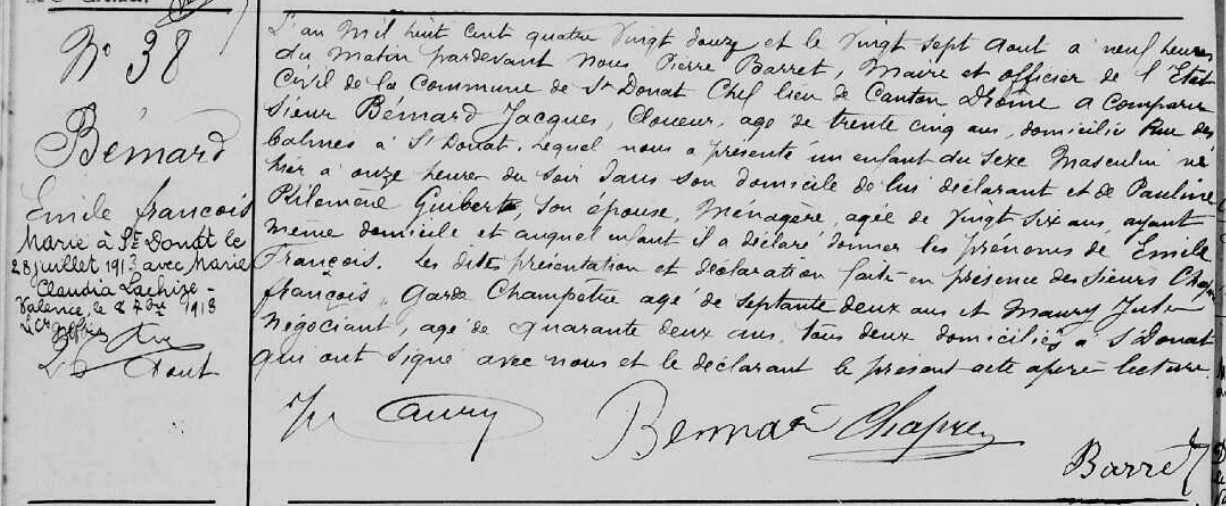 N° 38
Bémard
Emile françois
Marié à St Donat le
28 juillet 1913 avec Marie
Claudia Lachize -
Valence, le 8 7bre 1913
Le Cr Greffier
26 Aout
L'an Mil huit cent quatre vingt douze et le vingt sept Aout à neuf heures
du Matin pardevant Nous Pierre Barret, Maire et officier de l'Etat
Civil de la Commune de St Donat Chef lieu de Canton Drôme a Comparu
Sieur Bémard Jacques, Cloueur, age de trente cinq ans, domicilié Rue des
balmes à St Donat. Lequel nous a présenté un enfant du sexe Masculin né
hier à onze heures du soir dans son domicile de lui déclarant et de Pauline
Philomène Guibert, son épouse, Ménagère, agée de vingt six ans, ayant
même domicile et auquel enfant il a déclaré donner les prénoms de Emile
François. Les dites présentation et déclaration faite en présence des sieurs
françois, Garde Champêtre agé de septante deux ans et Maury Jules
négociant, agé de quarante deux ans, tous deux domiciliés à St Donat
qui ont signé avec nous et le déclarant le présent acte après lecture.
Maury Bémard Chaprey
Barret